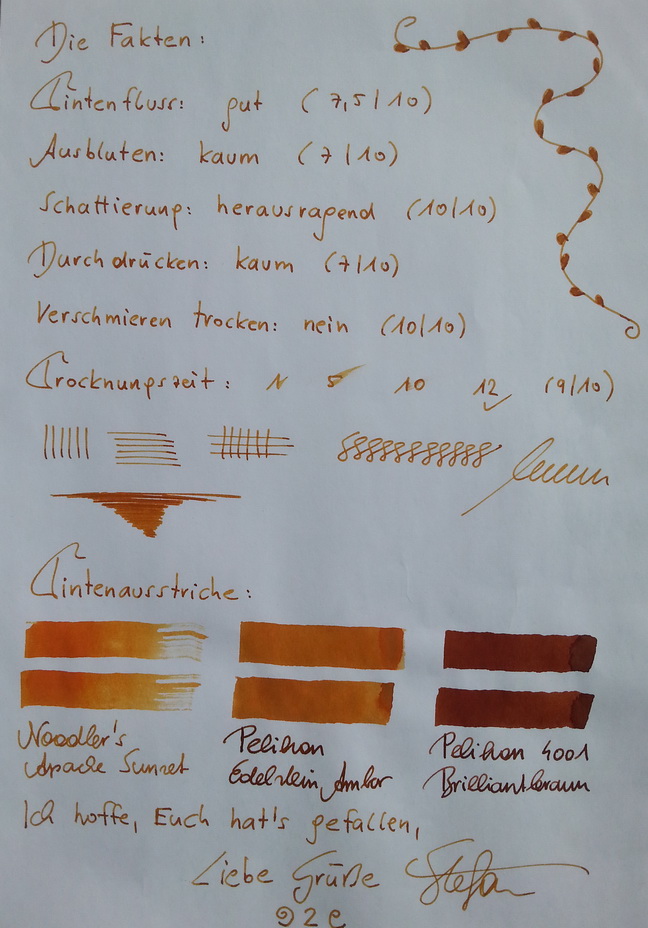 Die Fakten:
Tintenfluss: gut (7,5/10)
Ausbluten: kaum (7/10)
Schattierung: herausragend (10/10)
Durchdrücken: kaum (7/10)
Verschmieren trocken: nein (10/10)
Trocknungszeit: 1 5 10 12 ✓ (9/10)
Tintenausstriche:
Noodler's Apache Sunset
Pelikan Edelstein Amber
Pelikan 4001 Brilliantbraun
Ich hoffe, Euch hat's gefallen,
Liebe Grüße Stefan